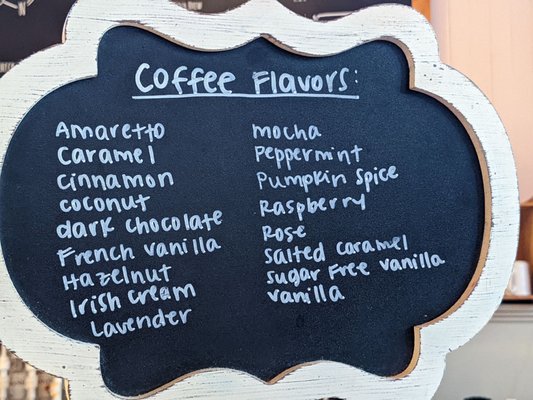 Coffee Flavors:
Amaretto
Caramel
Cinnamon
Coconut
dark chocolate
French vanilla
Hazelnut
Irish cream
Lavender
mocha
Peppermint
Pumpkin Spice
Raspberry
Rose
Salted caramel
Sugar Free vanilla
vanilla